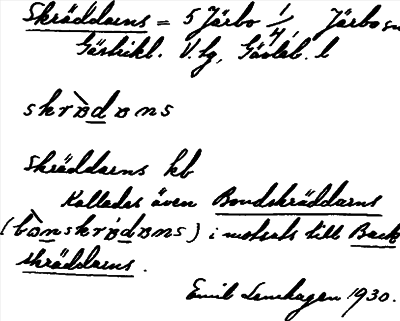 Skräddarns = 5 Järbo 1/4, Järbo sn
Gästrikl. V. lg, Gävleb. l
skrädäns
Skräddarns hb
Kallades även Bondskräddarns
i motsats till Back
skräddarns.
Emil Lemhagen 1930.